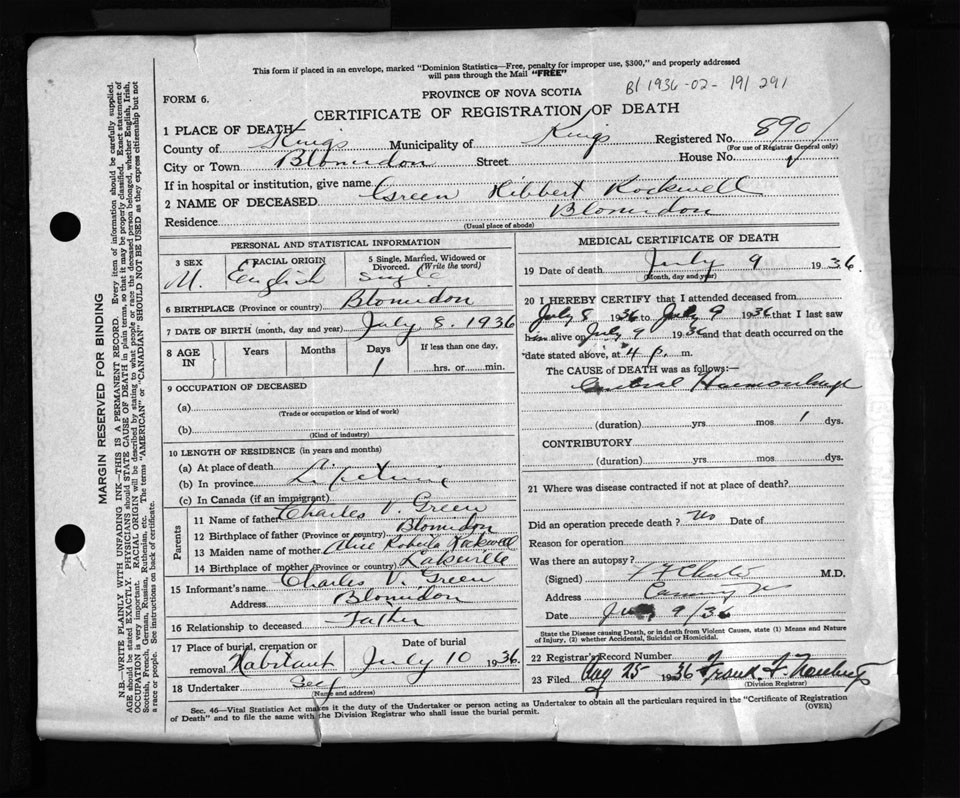 This form if placed in an envelope, marked "Dominion Statistics—Free, penalty for improper use, $300," and properly addressed
will pass through the Mail "FREE"
PROVINCE OF NOVA SCOTIA
B1 1936-02-191291
FORM 6.
CERTIFICATE OF REGISTRATION OF DEATH
1 PLACE OF DEATH—
County of Kings Municipality of Kings Registered No. 890
(For use of Registrar General only)
City or Town Blomidon Street House No.
If in hospital or institution, give name
2 NAME OF DECEASED Green Hibbert Rockwell
Residence Blomidon
(Usual place of abode)
PERSONAL AND STATISTICAL INFORMATION
3 SEX RACIAL ORIGIN 5 Single, Married, Widowed or Divorced. (Write the word)
M. English Single
6 BIRTHPLACE (Province or country) Blomidon
7 DATE OF BIRTH (month, day and year) July 8. 1936
8 AGE IN Years Months Days If less than one day,
1 hrs. or min.
9 OCCUPATION OF DECEASED
(a)
(Trade or occupation or kind of work)
(b)
(Kind of industry)
10 LENGTH OF RESIDENCE (in years and months)
(a) At place of death
(b) In province Lifetime
(c) In Canada (if an immigrant)
Parents
11 Name of father Charles V. Green
12 Birthplace of father (Province or country) Blomidon
13 Maiden name of mother Alice Roberta Rockwell
14 Birthplace of mother (Province or country) Lakeville
15 Informant's name Charles V. Green
Address Blomidon
16 Relationship to deceased Father
17 Place of burial, cremation or removal Habitant Date of burial July 10 1936
18 Undertaker Self
(Name and address)
MEDICAL CERTIFICATE OF DEATH
19 Date of death July 9 1936.
(Month, day and year)
20 I HEREBY CERTIFY that I attended deceased from
July 8 1936 to July 9 1936 that I last saw
him alive on July 9 1936 and that death occurred on the
date stated above, at 4 p. m.
The CAUSE of DEATH was as follows:—
Haemorrhage
(duration) yrs mos 1 dys.
CONTRIBUTORY
(duration) yrs. mos. dys.
21 Where was disease contracted if not at place of death?
Did an operation precede death? no Date of
Reason for operation
Was there an autopsy?
(Signed) M.D.
Address Canning
Date 9/36
State the Disease causing Death, or in death from Violent Causes, state (1) Means and Nature
of Injury, (2) whether Accidental, Suicidal or Homicidal.
22 Registrar's Record Number
23 Filed Aug 25 1936 Frank F.
(Division Registrar)
Sec. 46—Vital Statistics Act makes it the duty of the Undertaker or person acting as Undertaker to obtain all the particulars required in the "Certificate of Registration
of Death" and to file the same with the Division Registrar who shall issue the burial permit.
(OVER)
MARGIN RESERVED FOR BINDING
N.B.—WRITE PLAINLY WITH UNFADING INK—THIS IS A PERMANENT RECORD. Every item of information should be carefully supplied.
AGE should be stated EXACTLY. PHYSICIANS should STATE CAUSE OF DEATH in plain terms, so that it may be properly classified. Exact statement of
OCCUPATION is very important. RACIAL ORIGIN will be described by stating to what people or race the deceased person belonged, whether English, Irish,
Scottish, French, German, Russian, Ruthenian, etc. The terms "AMERICAN" or "CANADIAN" SHOULD NOT BE USED as they express citizenship but not
a race or people. See instructions on back of certificate.